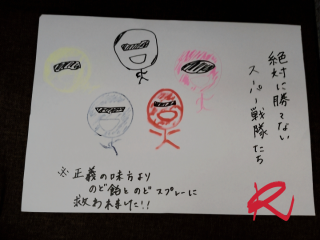 絶対に勝てない
スーパー戦隊たち
※正義の味方より
のど飴とのどスプレーに
救われました!!
R